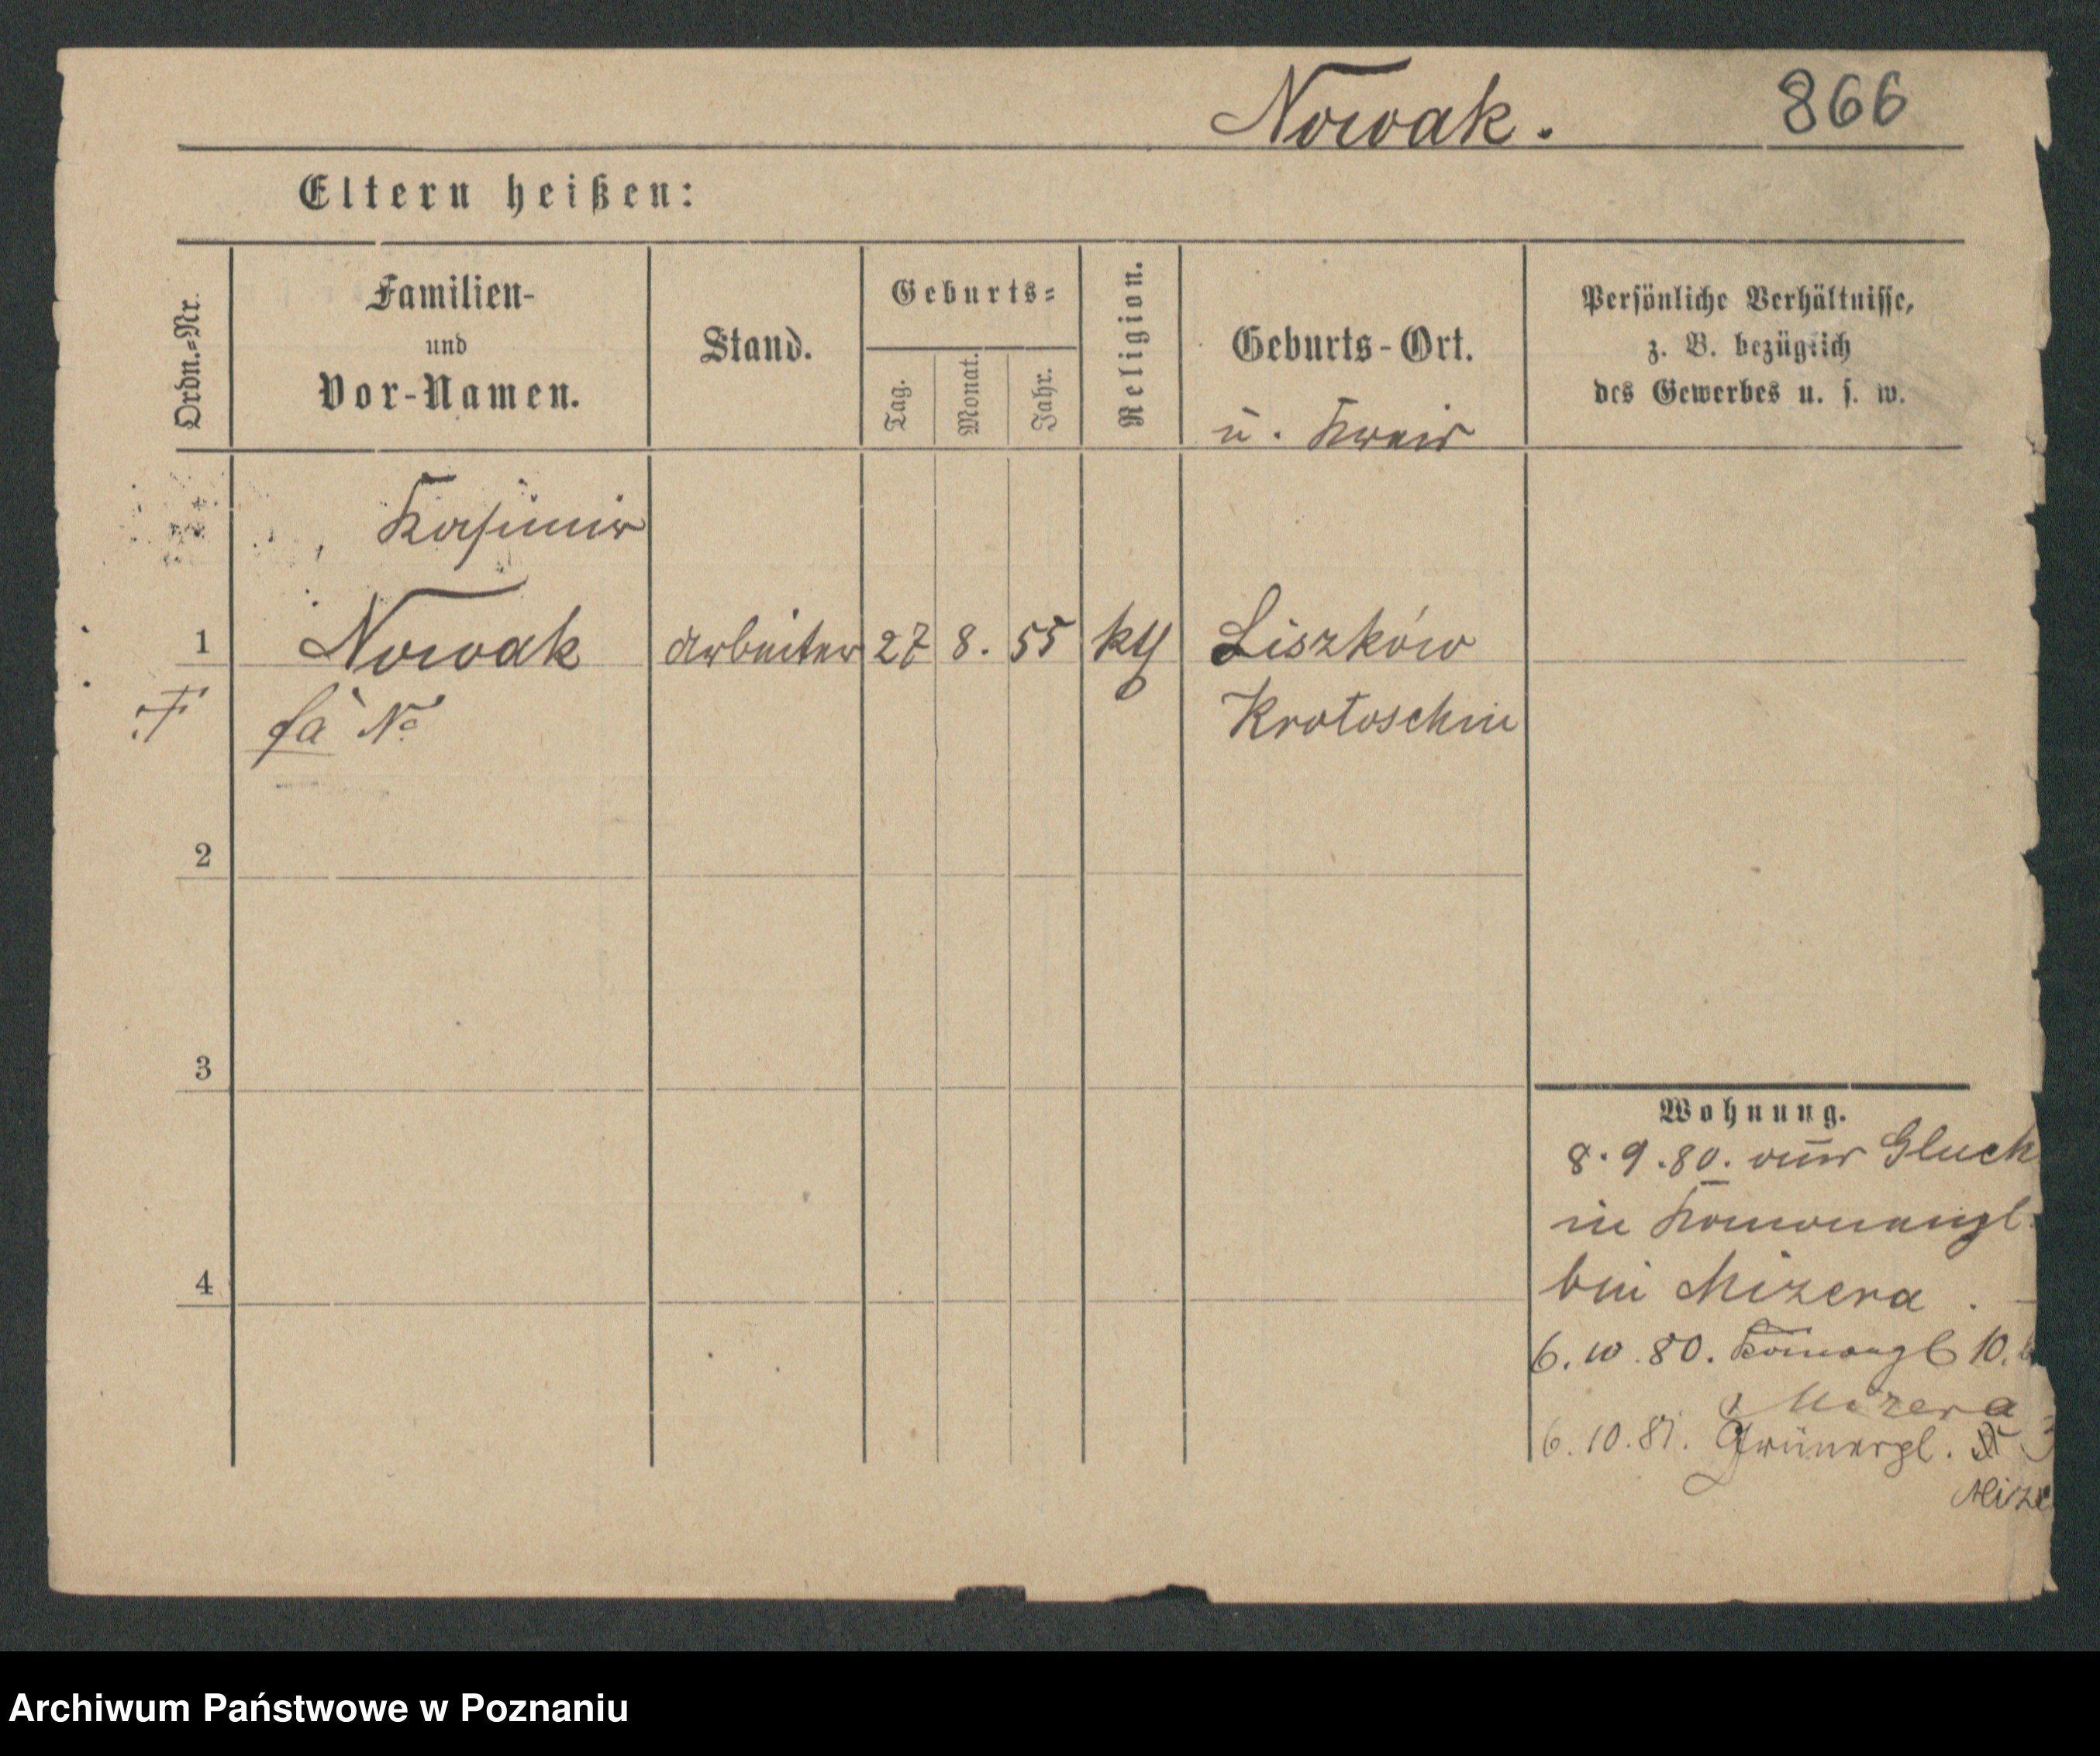 Nowak. 866
Eltern heißen:
Ordn.=Nr.
Familien-
und
Vor-Namen.
Stand.
Geburts=
Tag.
Monat.
Jahr.
Religion.
Geburts-Ort.
u. Kreis
Persönliche Verhältnisse,
z. B. bezüglich
des Gewerbes u. s. w.
Kasimir
1 Nowak Arbeiter 27 8. 55 kth Liszków
fa No Krotoschin
2
3
4
Wohnung.
8.9.80. aus Gluch
in
bei Mizera.
6.10.80. 10.
Mizera
6.10.81. 3
Mize
Archiwum Państwowe w Poznaniu